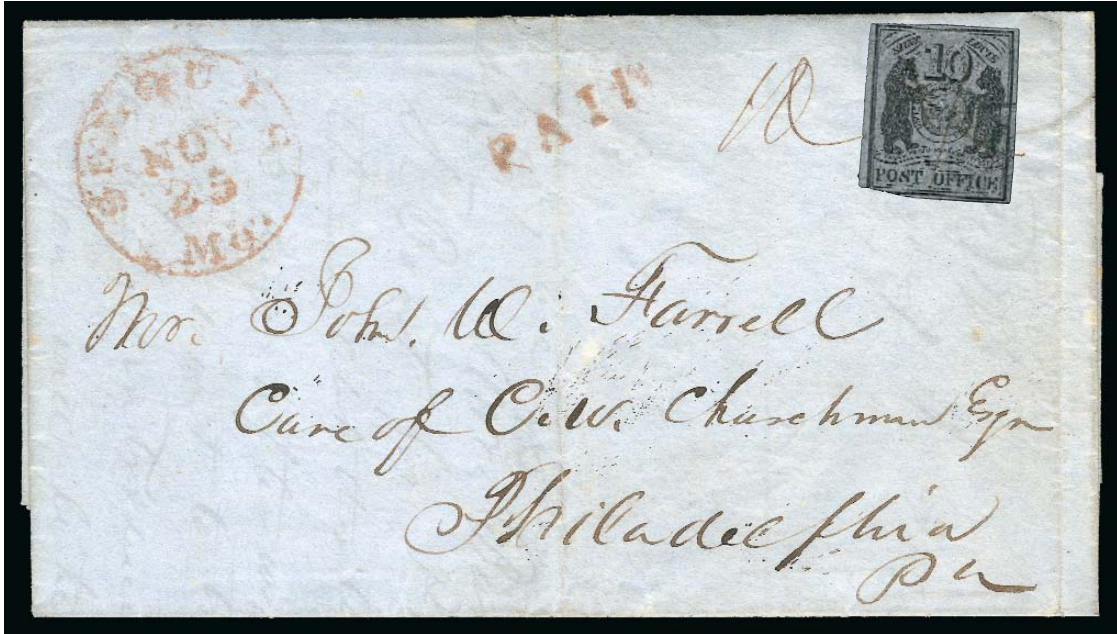 ST. LOUIS
NOV
25
Mo.
PAID
10
SAINT LOUIS
10
POST OFFICE
Mr. John. W. Farrell
Care of C. W. Churchman Esqr
Philadelphia
Pa